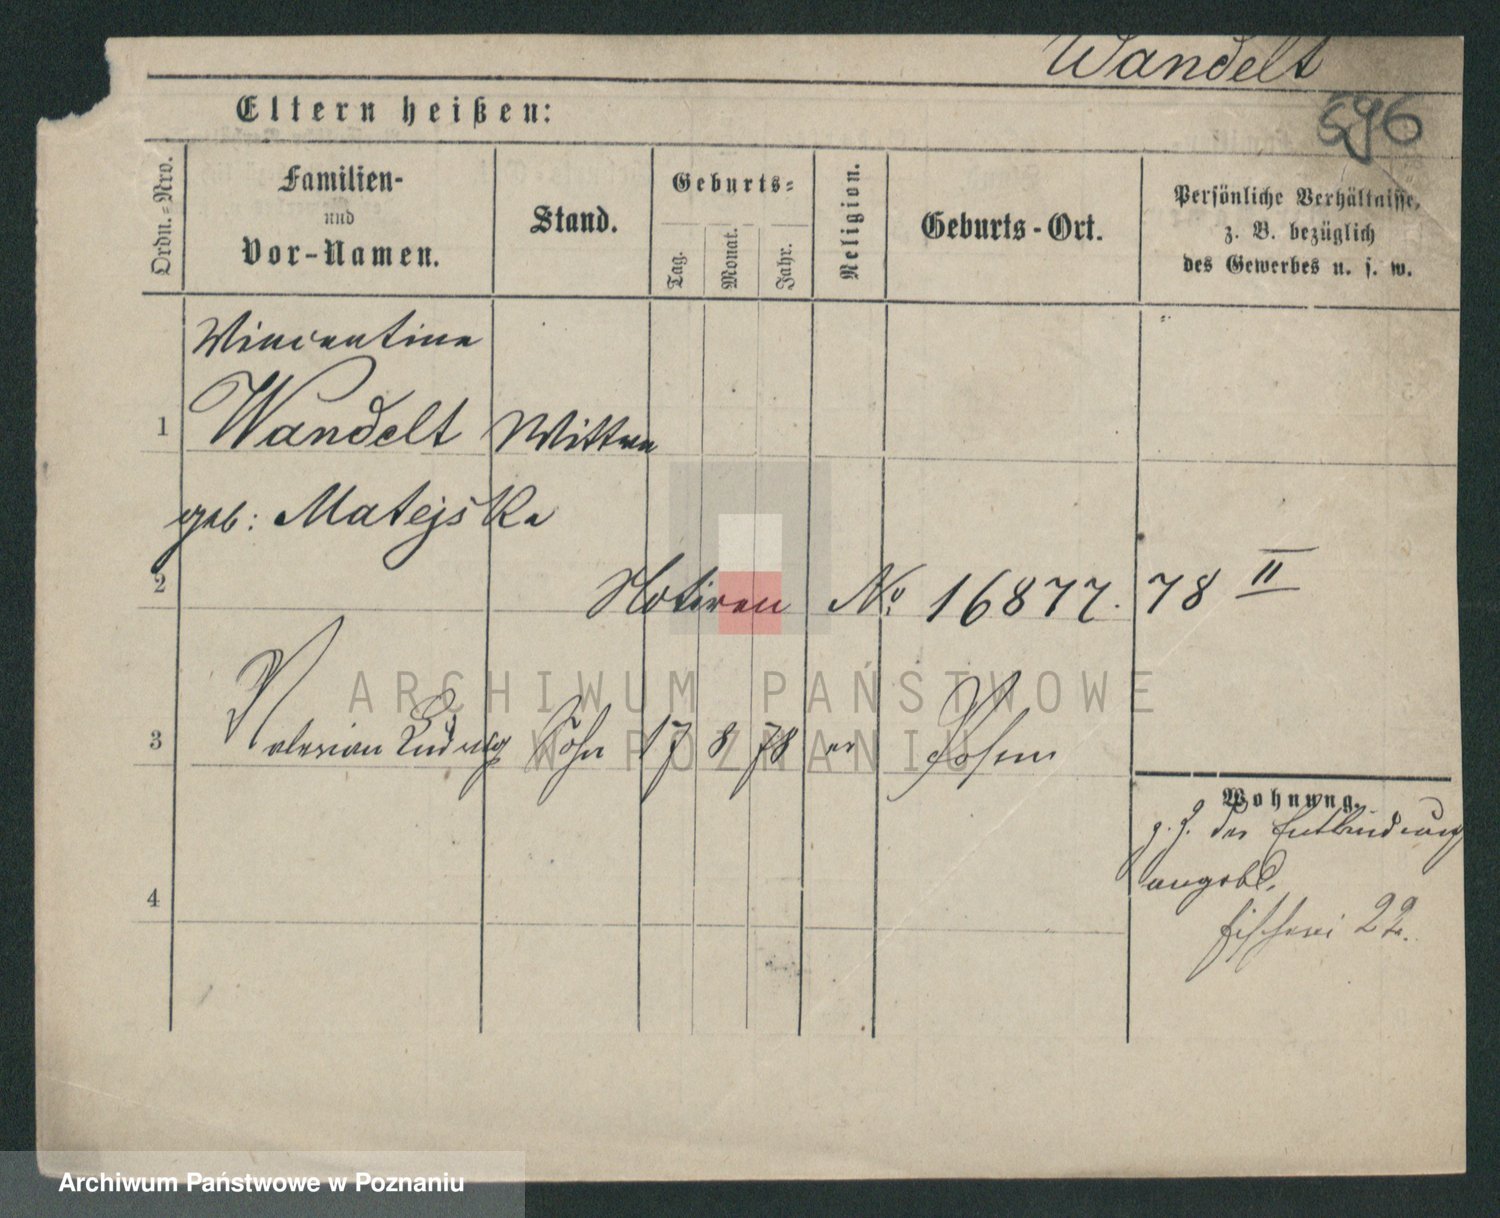 Wandelt
596
Eltern heißen:
Ordn.=Nro.
Familien-
und
Vor-Namen.
Stand.
Geburts=
Tag.
Monat.
Jahr.
Religion.
Geburts-Ort.
Persönliche Verhältnisse,
z. B. bezüglich
des Gewerbes u. s. w.
Wincentine
1 Wandelt Wittwe
geb: Matejska
2 Notiren No 16877. 78 II
3 Valerian Ludwig Sohn 17 8 78 Posen
Wohnung.
z. Z. der Entbindung
angebl.
Fischerei 22.
4
ARCHIWUM PAŃSTWOWE
W POZNANIU
Archiwum Państwowe w Poznaniu